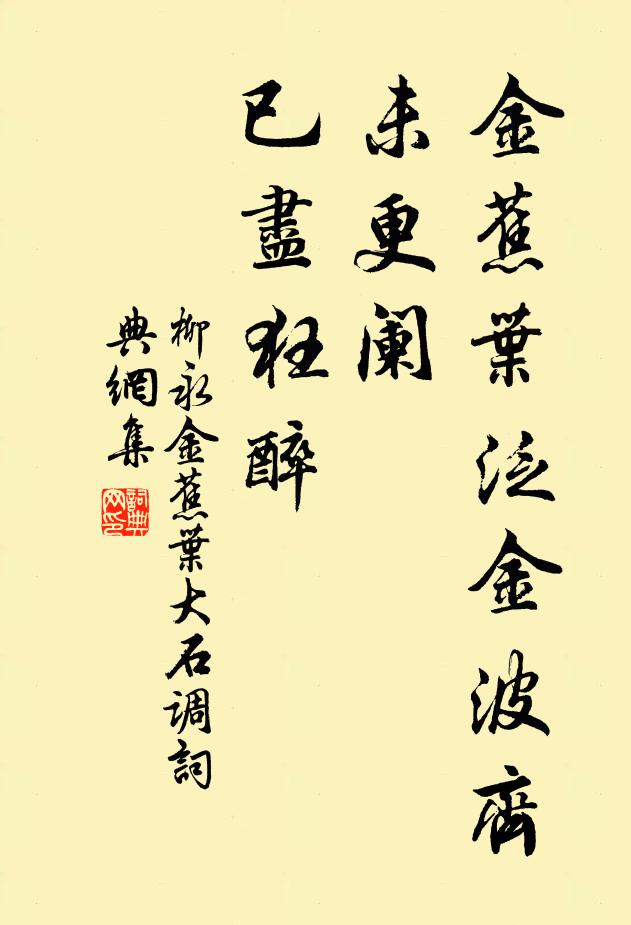 金蕉葉泛金波齊
未更阑
已盡狂醉
柳永金蕉葉大石调詞
典網集
詞典网印